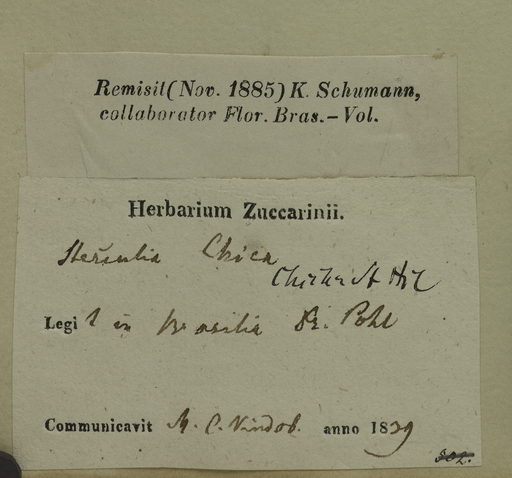 Remisit (Nov. 1885) K. Schumann,
collaborator Flor. Bras. – Vol.
Herbarium Zuccarinii.
Sterculia Chica
St Hil
Legit in Brasilia Dr. Pohl
Communicavit M. C. Vindob. anno 1839
302.